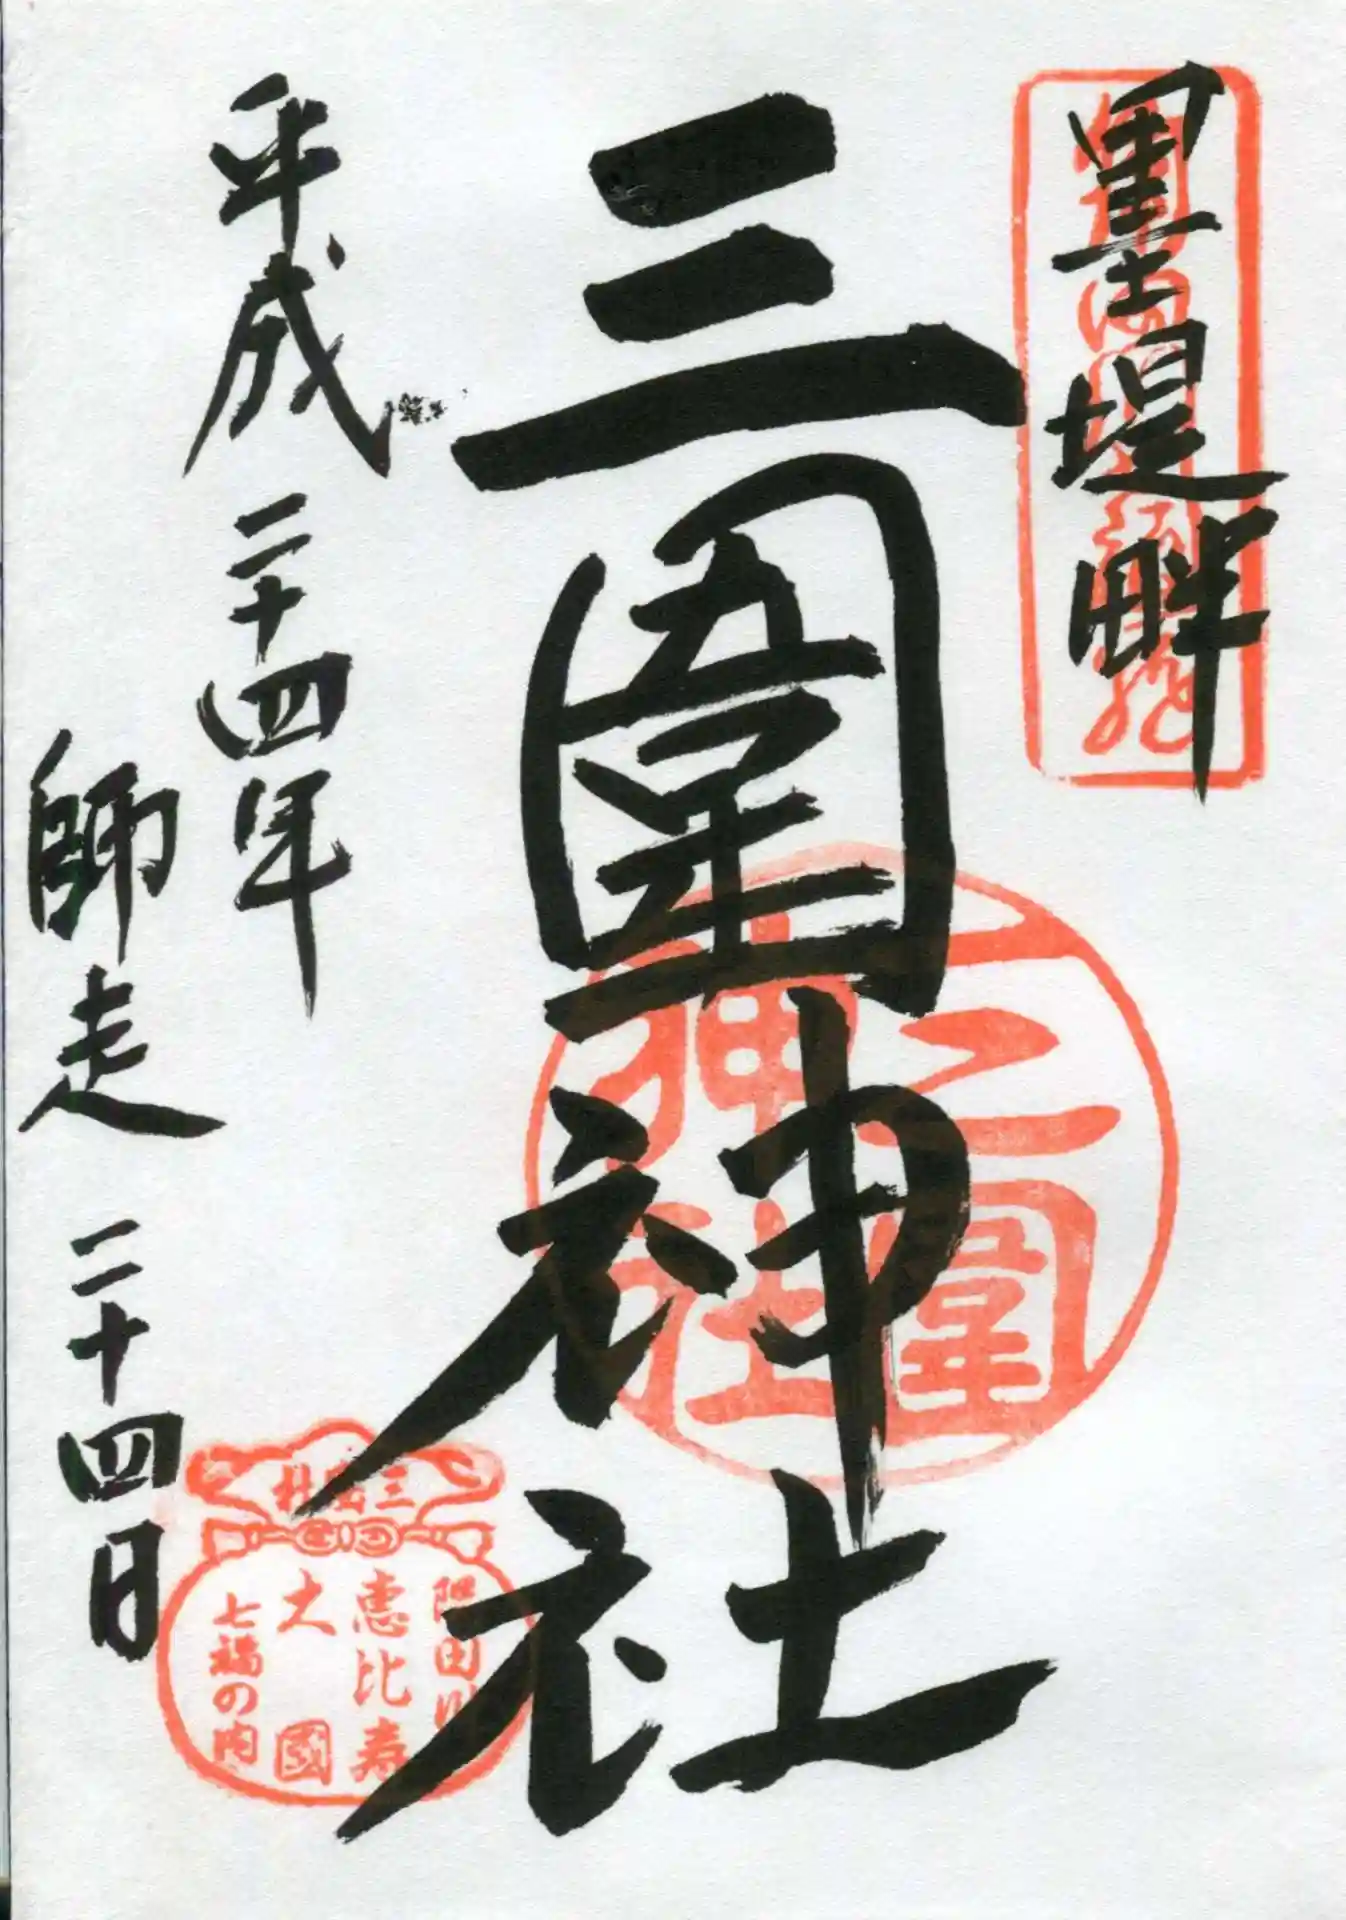 墨堤畔
三圍神社
平成二十四年
師走 二十四日
三圍
神社
三圍社
隅田川
恵比寿
大國
七福の内